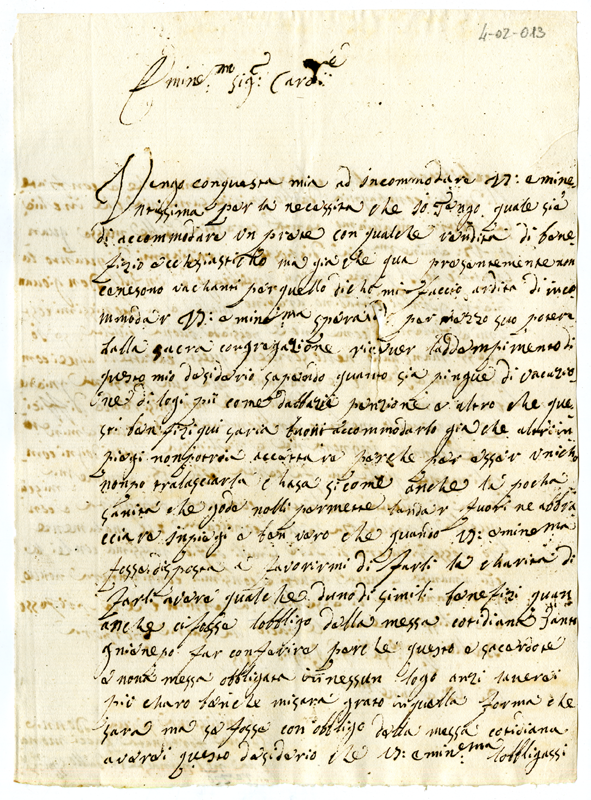 4-02-013
Emin.mo Sig.r Card.le
Vengo conquesta mia ad incommodare V: emine
ntissima per la necessita che io tengo quale sie
di accommodare un prete con qualche rendita di bene
fizio ecclesiasticho ma gia che qua presentemente non
cenesono vachanti per quello dicho mi faccio ardita di inco
mmodar V: emine:ma speran per mezzo suo potere
dalla sacra congregazione ricever laddempimento di
questo mio desiderio sapendo quanto sia pingue di vacazio
ne di logi pii come dabbazie penzione e altro che que
sti benefizi qui saria buoni accommodarlo gia che altri in
piegi non potria accettare perche per esser unicho
nonpo tralasciarla chasa si come anche la pocha
sanita che gode nolli permette landar fuori ne abbra
cciare inpiegi e ben vero che quando V: emine:ma
fosse disposta a favorirmi di farli la charita di
farli avere qualche duno di simili benefizi quan
anche ci fosse lobbligo della messa cotidiana
far conferire perche questo e sacerdote
e nona messa obbligata in nessun logo anzi laverei
piu charo benche misara grato in quella forma che
sara ma se fosse con obbligo della messa cotidiana
averei questo desiderio che V: emine:ma lobbligassi